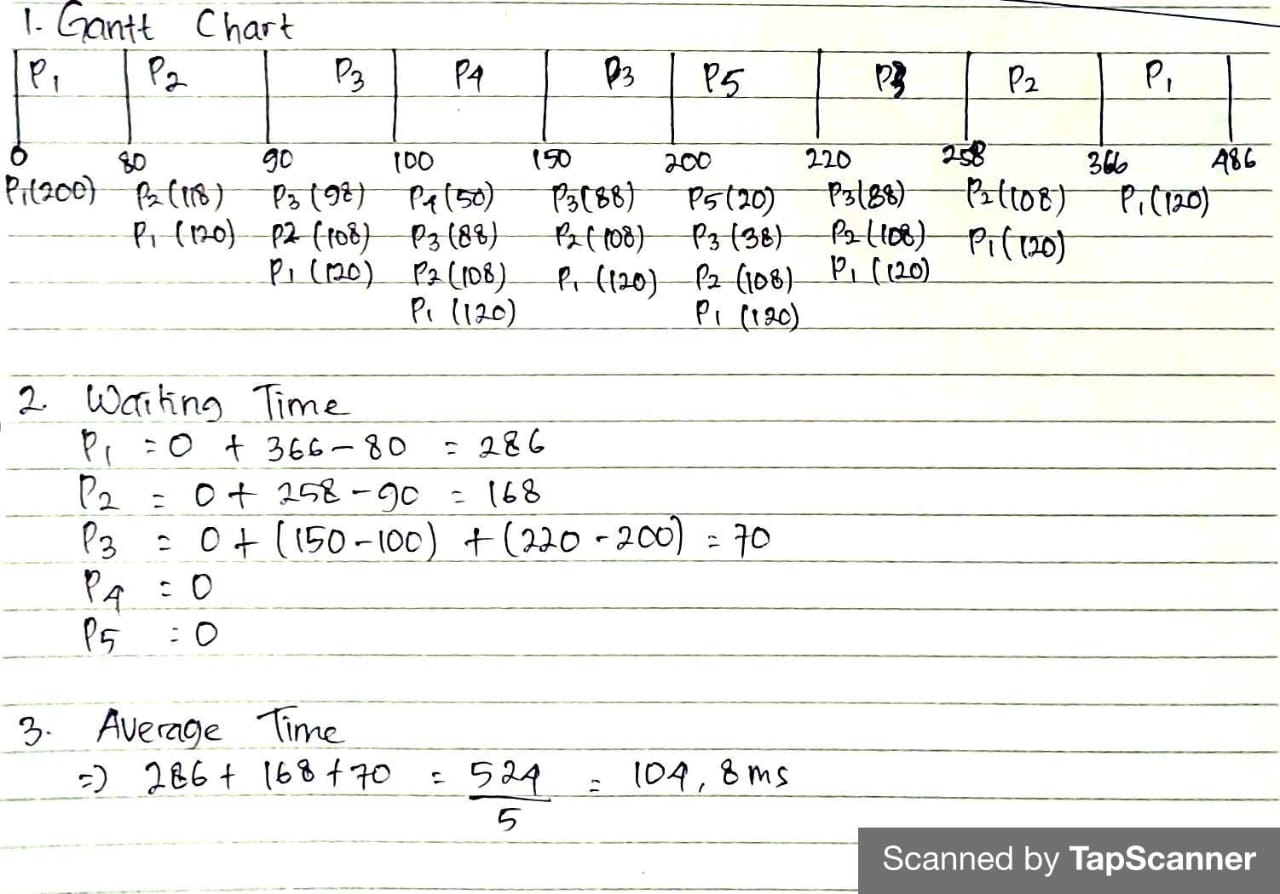 1. Gantt Chart
P1 P2 P3 P4 P3 P5 P3 P2 P1
0 80 90 100 150 200 220 258 366 486
P1(200) P2(118) P3(98) P4(50) P3(88) P5(20) P3(88) P2(108) P1(120)
P1(120) P2(108) P3(88) P2(108) P3(38) P2(108) P1(120)
P1(120) P2(108) P1(120) P2(108) P1(120)
P1(120) P1(120)
2. Waiting Time
P1 = 0 + 366 - 80 = 286
P2 = 0 + 258 - 90 = 168
P3 = 0 + (150 - 100) + (220 - 200) = 70
P4 = 0
P5 = 0
3. Average Time
=> 286 + 168 + 70 = 524 = 104,8 ms
5
Scanned by TapScanner